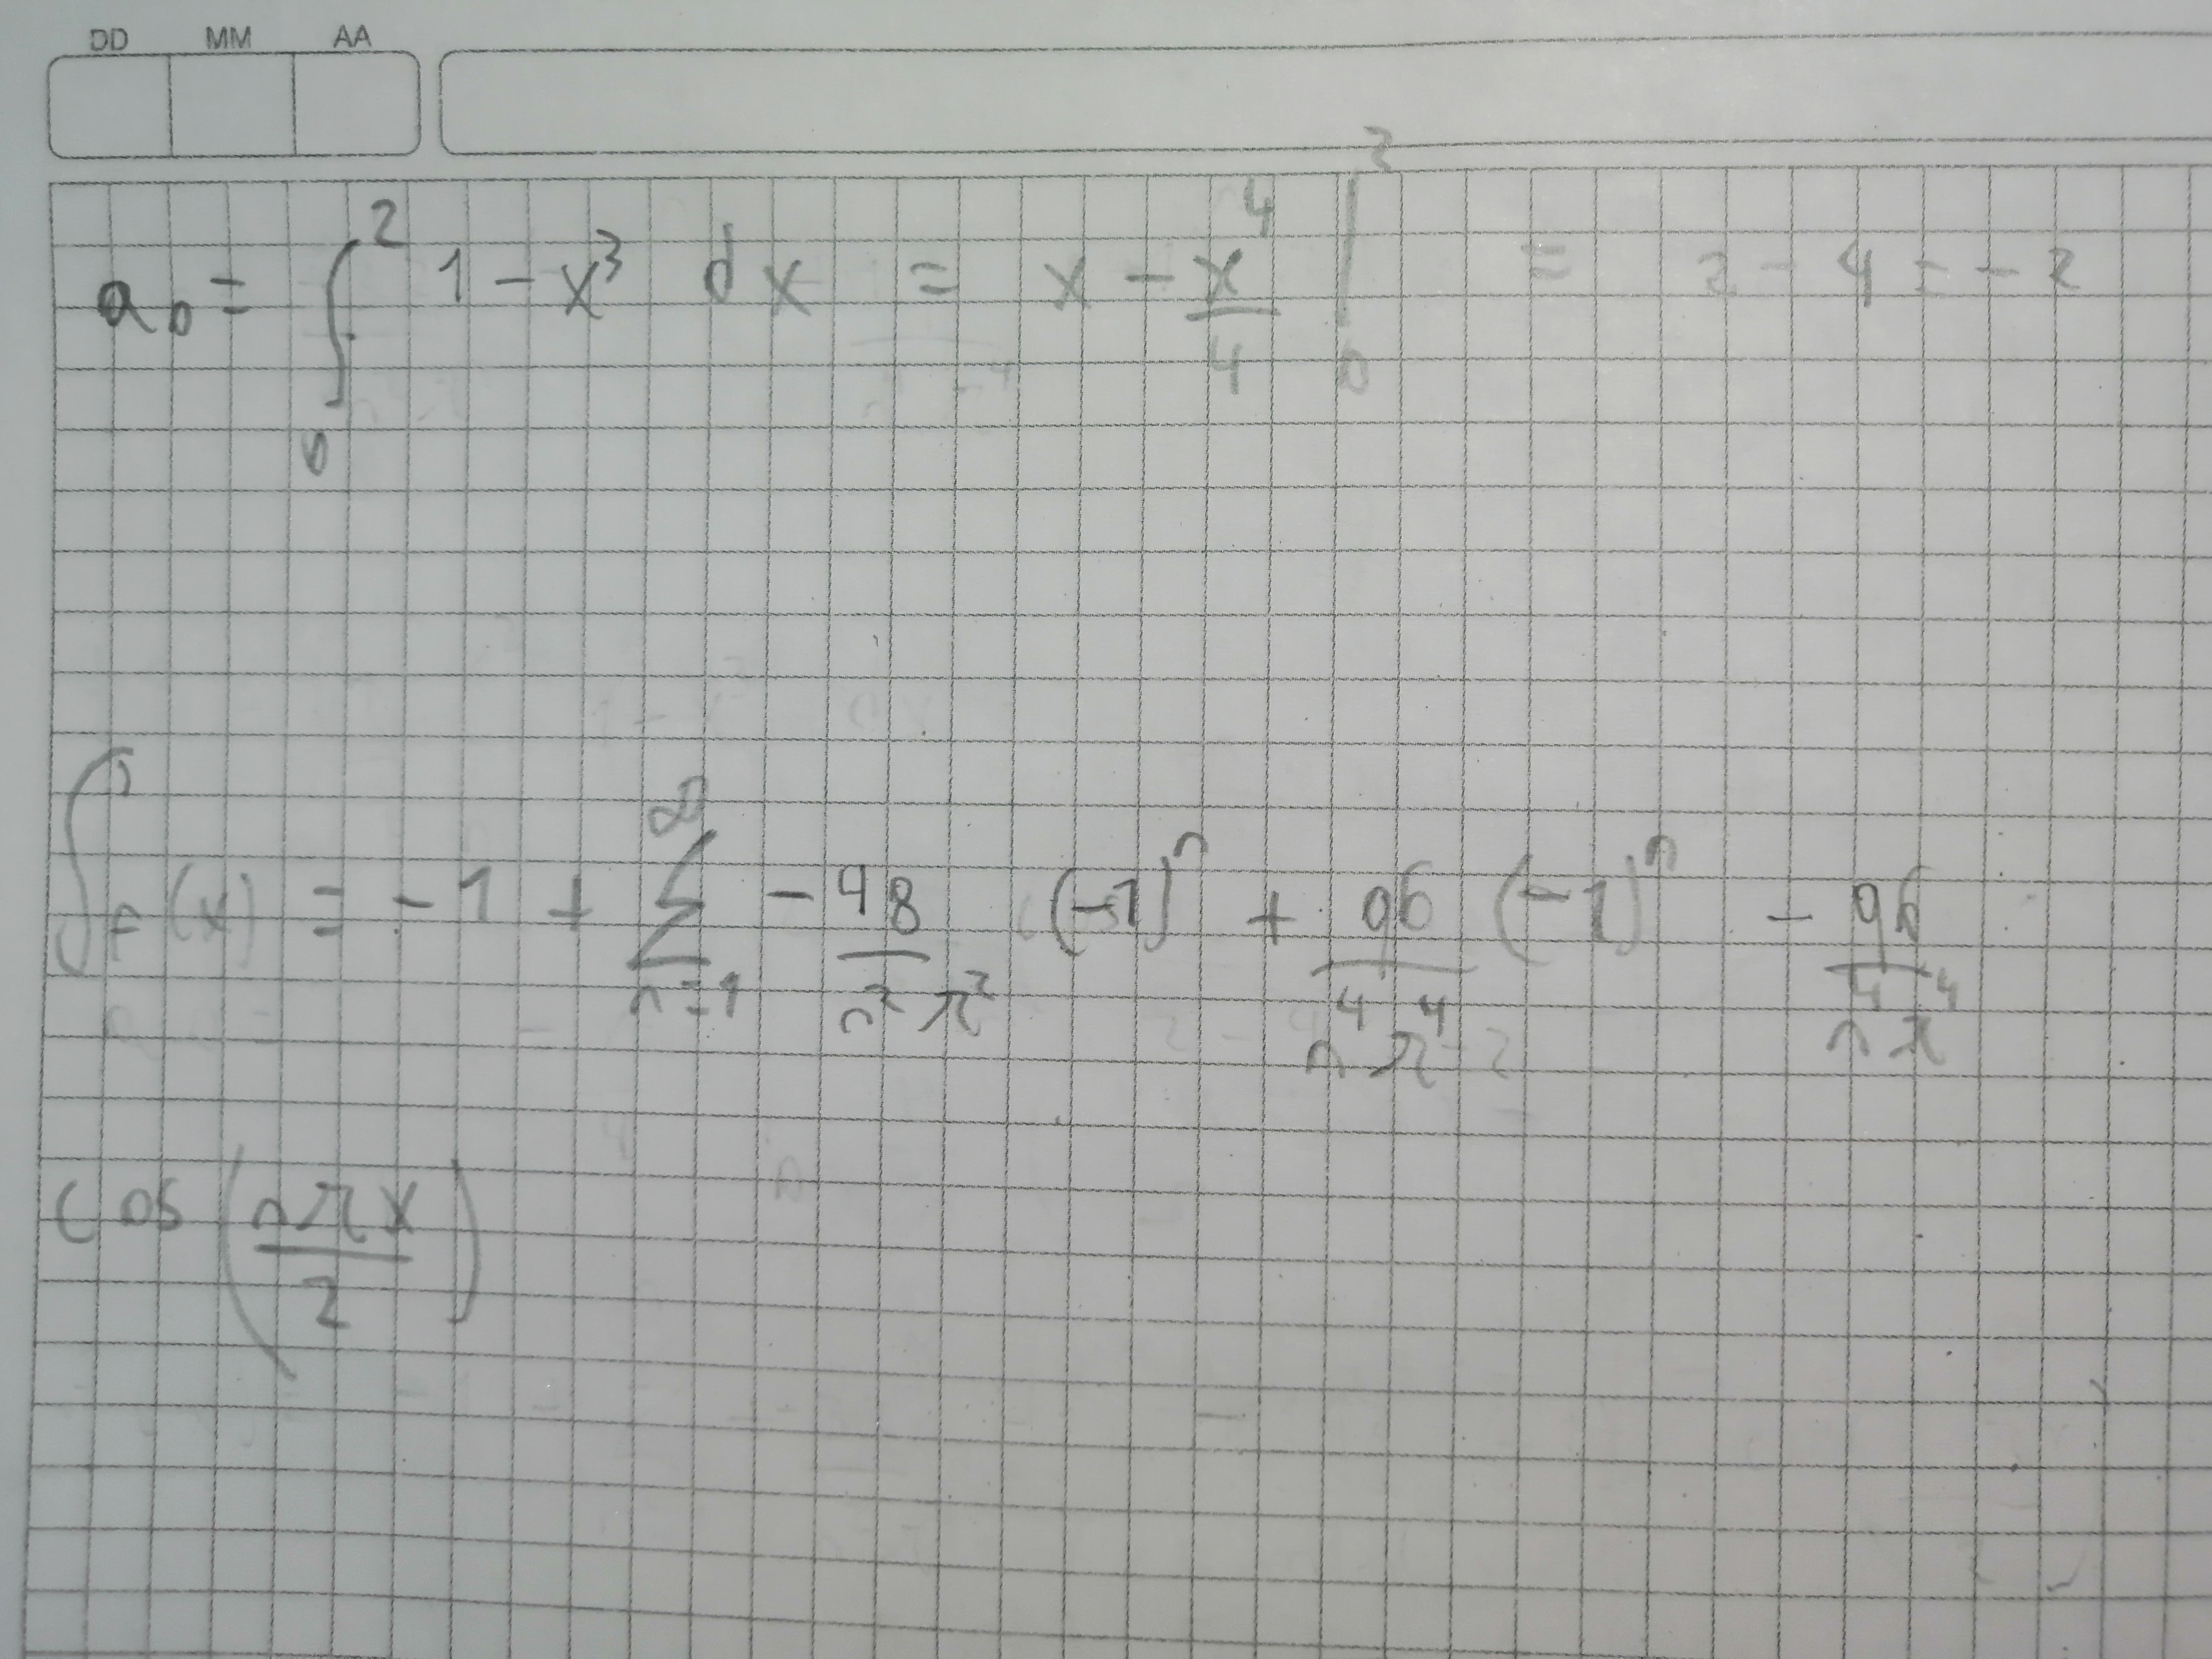 DD MM AA
a₀ = ∫₀² 1 - x³ dx = x - x⁴/4 |₀² = 2 - 4 = -2
f(x) = -1 + ∑_{n=1}^{∞} - 48/n²π² (-1)ⁿ + 96/n⁴π⁴ (-1)ⁿ - 96/n⁴π⁴
cos(nπx/2)